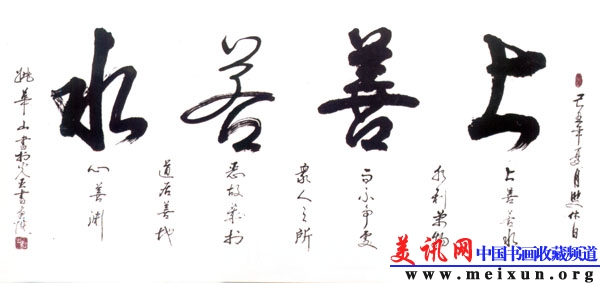 己丑年夏月
上善若水
上善若水
水利萬物
而不争處
衆人之所
惡故幾於
道居善地
心善渊
華山書於
美讯网 中国书画收藏频道
www.meixun.org